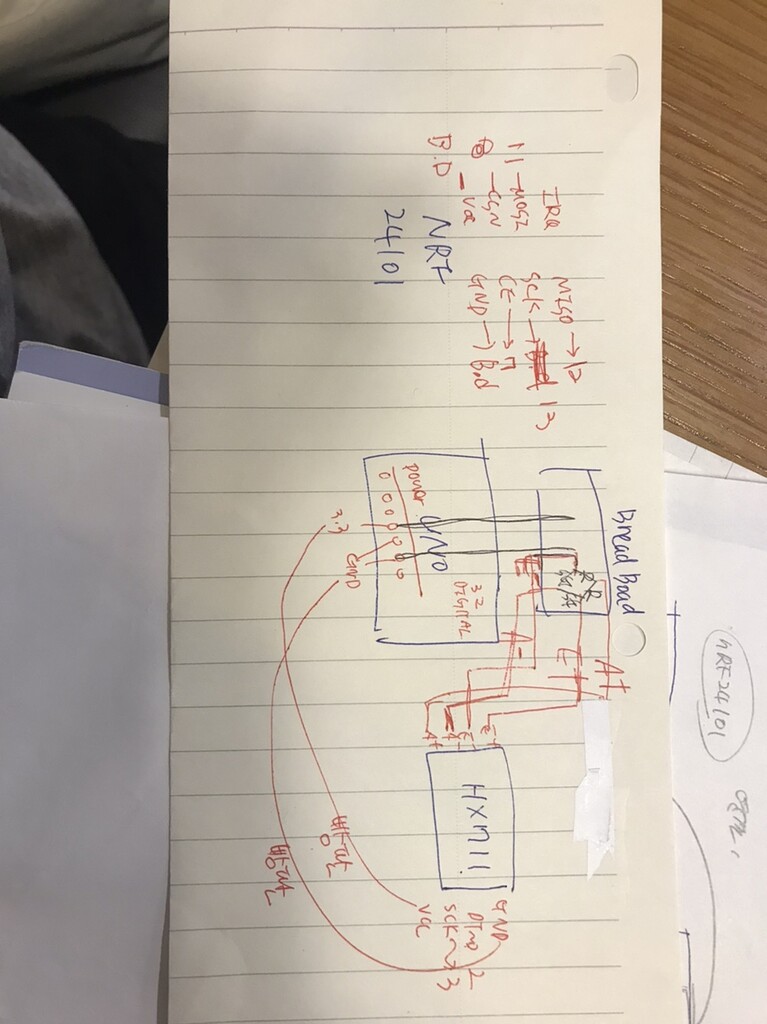 IRQ
MISO → 12
11 - MOSI
SCK → 13
8 - CSN
CE → 7
B.D - Vcc
GND → B.d
NRF
24101
Bread Board
UNO
power
3.3
GND
3 2
DIGITAL
A+
E+
A-
E+
E-
A-
A+
HX711
GND
DT → 2
SCK → 3
Vcc
NRF24101